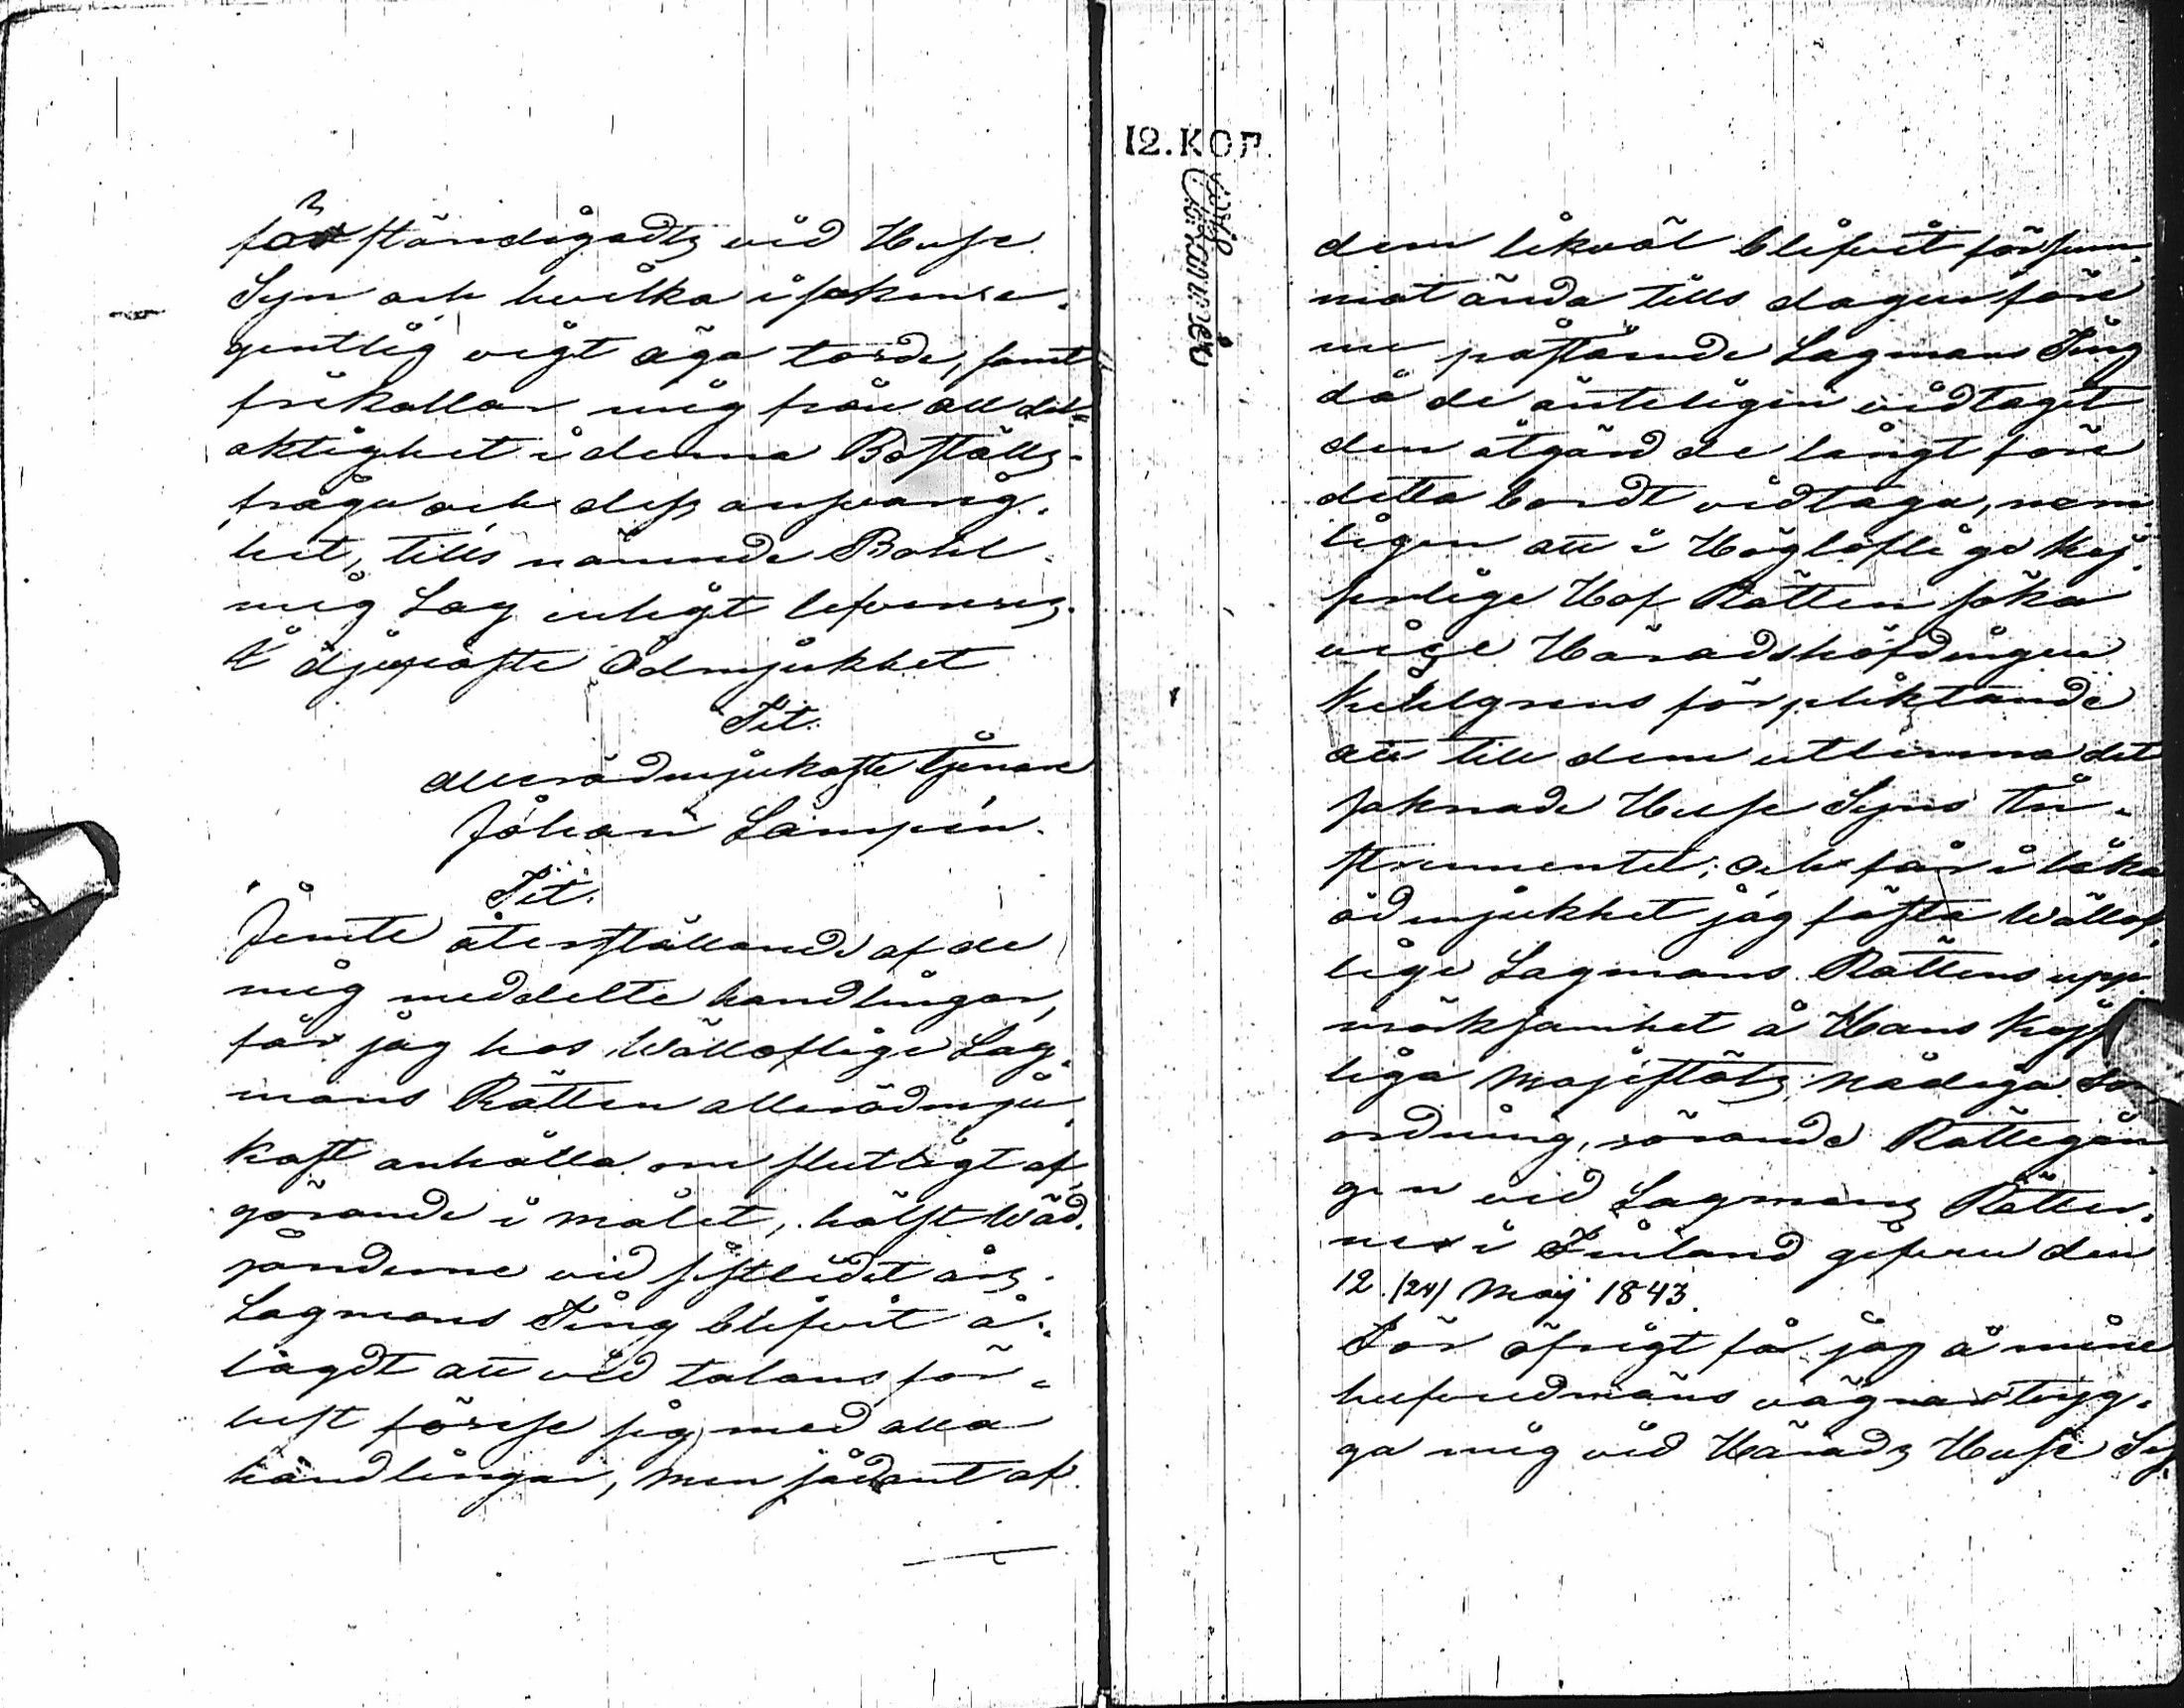 förständigadts vid Huse
Syn och hvilka i saken sa-
gentlig vigt äga torde, samt
frikallar mig från all del-
aktighet i denna Boställs-
fråga och dess ansvarig-
het, tills nämnde Bohl
mig Lag enligt lefvereras.
I djupaste ödmjukhet
Tit.
allerödmjukaste tjenare
Johan Lampén.
Tit.
Jemte återställande af de
mig meddelte handlingar,
får jag hos Wällofliga Lag-
mans Rätten allerödmju-
kast anhålla om slutligt af-
görande i målet, hälst Wäd-
janderne vid sistledit års
Lagmans Ting blifvit å-
lagdt att vid talans för-
lust förese sig med alla
handlingar, men sådant af
12.KOP.
dem likväl blifvit försum-
mat ända tills dagen före
nu påstående Lagmans Ting
då de änteligen vidtagit
den åtgärd de långt före
detta bordt vidtaga, nem-
ligen att i Höglofliga Kej-
serliga Hof Rätten söka
vice Häradshöfdingen
Kihlgrens förpliktande
att till dem utlemna det
saknade Huse Syns In-
strumentet; Och får i lika
ödmjukhet jag fästa Wällof-
lige Lagmans Rättens upp-
märksamhet å Hans Kejser-
liga Majestäts Nådiga För-
ordning, rörande Rättegån-
gen vid Lagmans Rätter-
ne i Finland gifven den
12. (24) Maj 1843.
För öfrigt får jag å mine
hufvudmäns vägnar tryg-
ga mig vid Härads Huse Sy